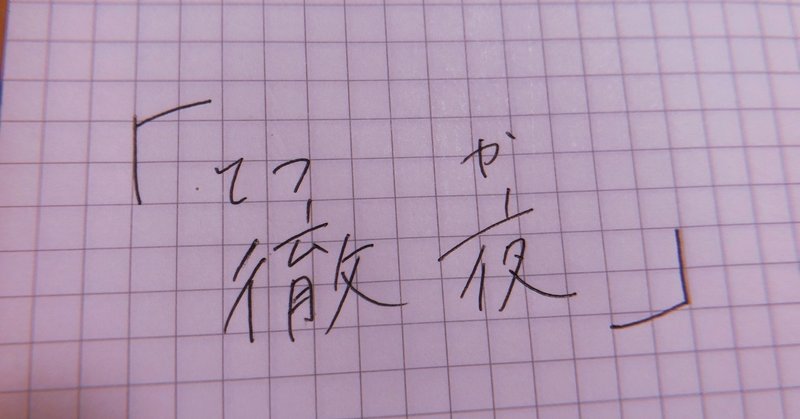 てつ や
「徹夜」